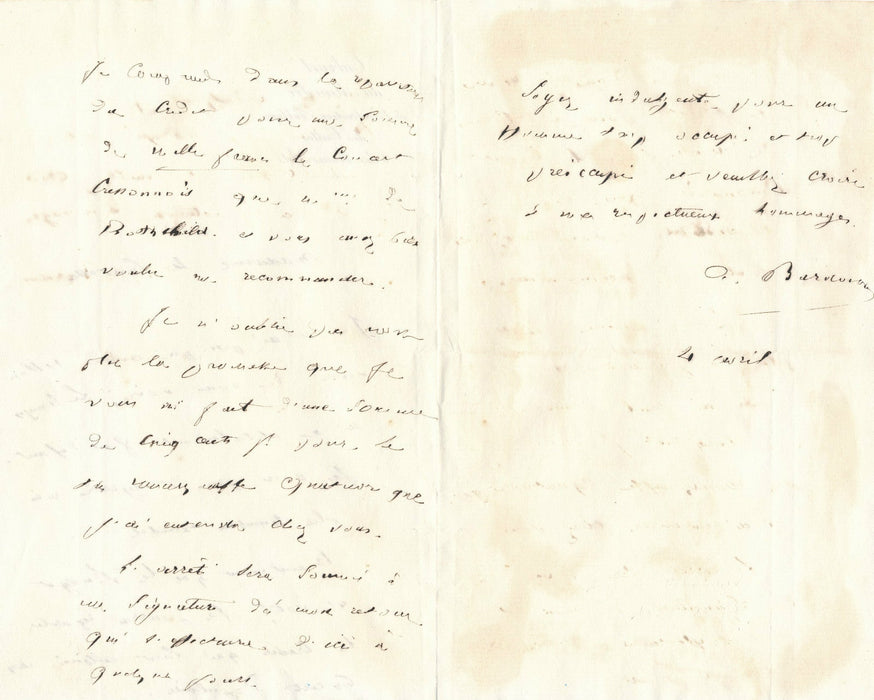 Je comprends dans la répartition
du Crédit pour une Somme
de mille francs le Concert
Cressonnois que M. de
Rothschild et vous avez bien
voulu me recommander.
Je n'oublie pas non
plus la promesse que je
vous ai fait d'une Somme
de cinq cents f. pour le
quatuor que
j'ai entendu chez vous.
L'arrêté sera Soumis à
ma Signature dès mon retour
qui s'effectuera d'ici à
quelque jours.
Soyez indulgente pour un
homme trop occupé et trop
préoccupé et veuillez croire
à mes respectueux hommages.
A. Bardoux
4 avril